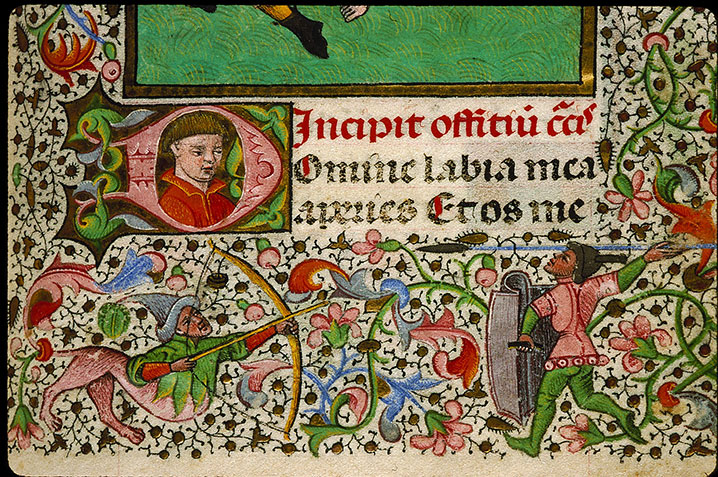 Incipit offitiū c̄cis
Domine labia mea
aperies Et os me